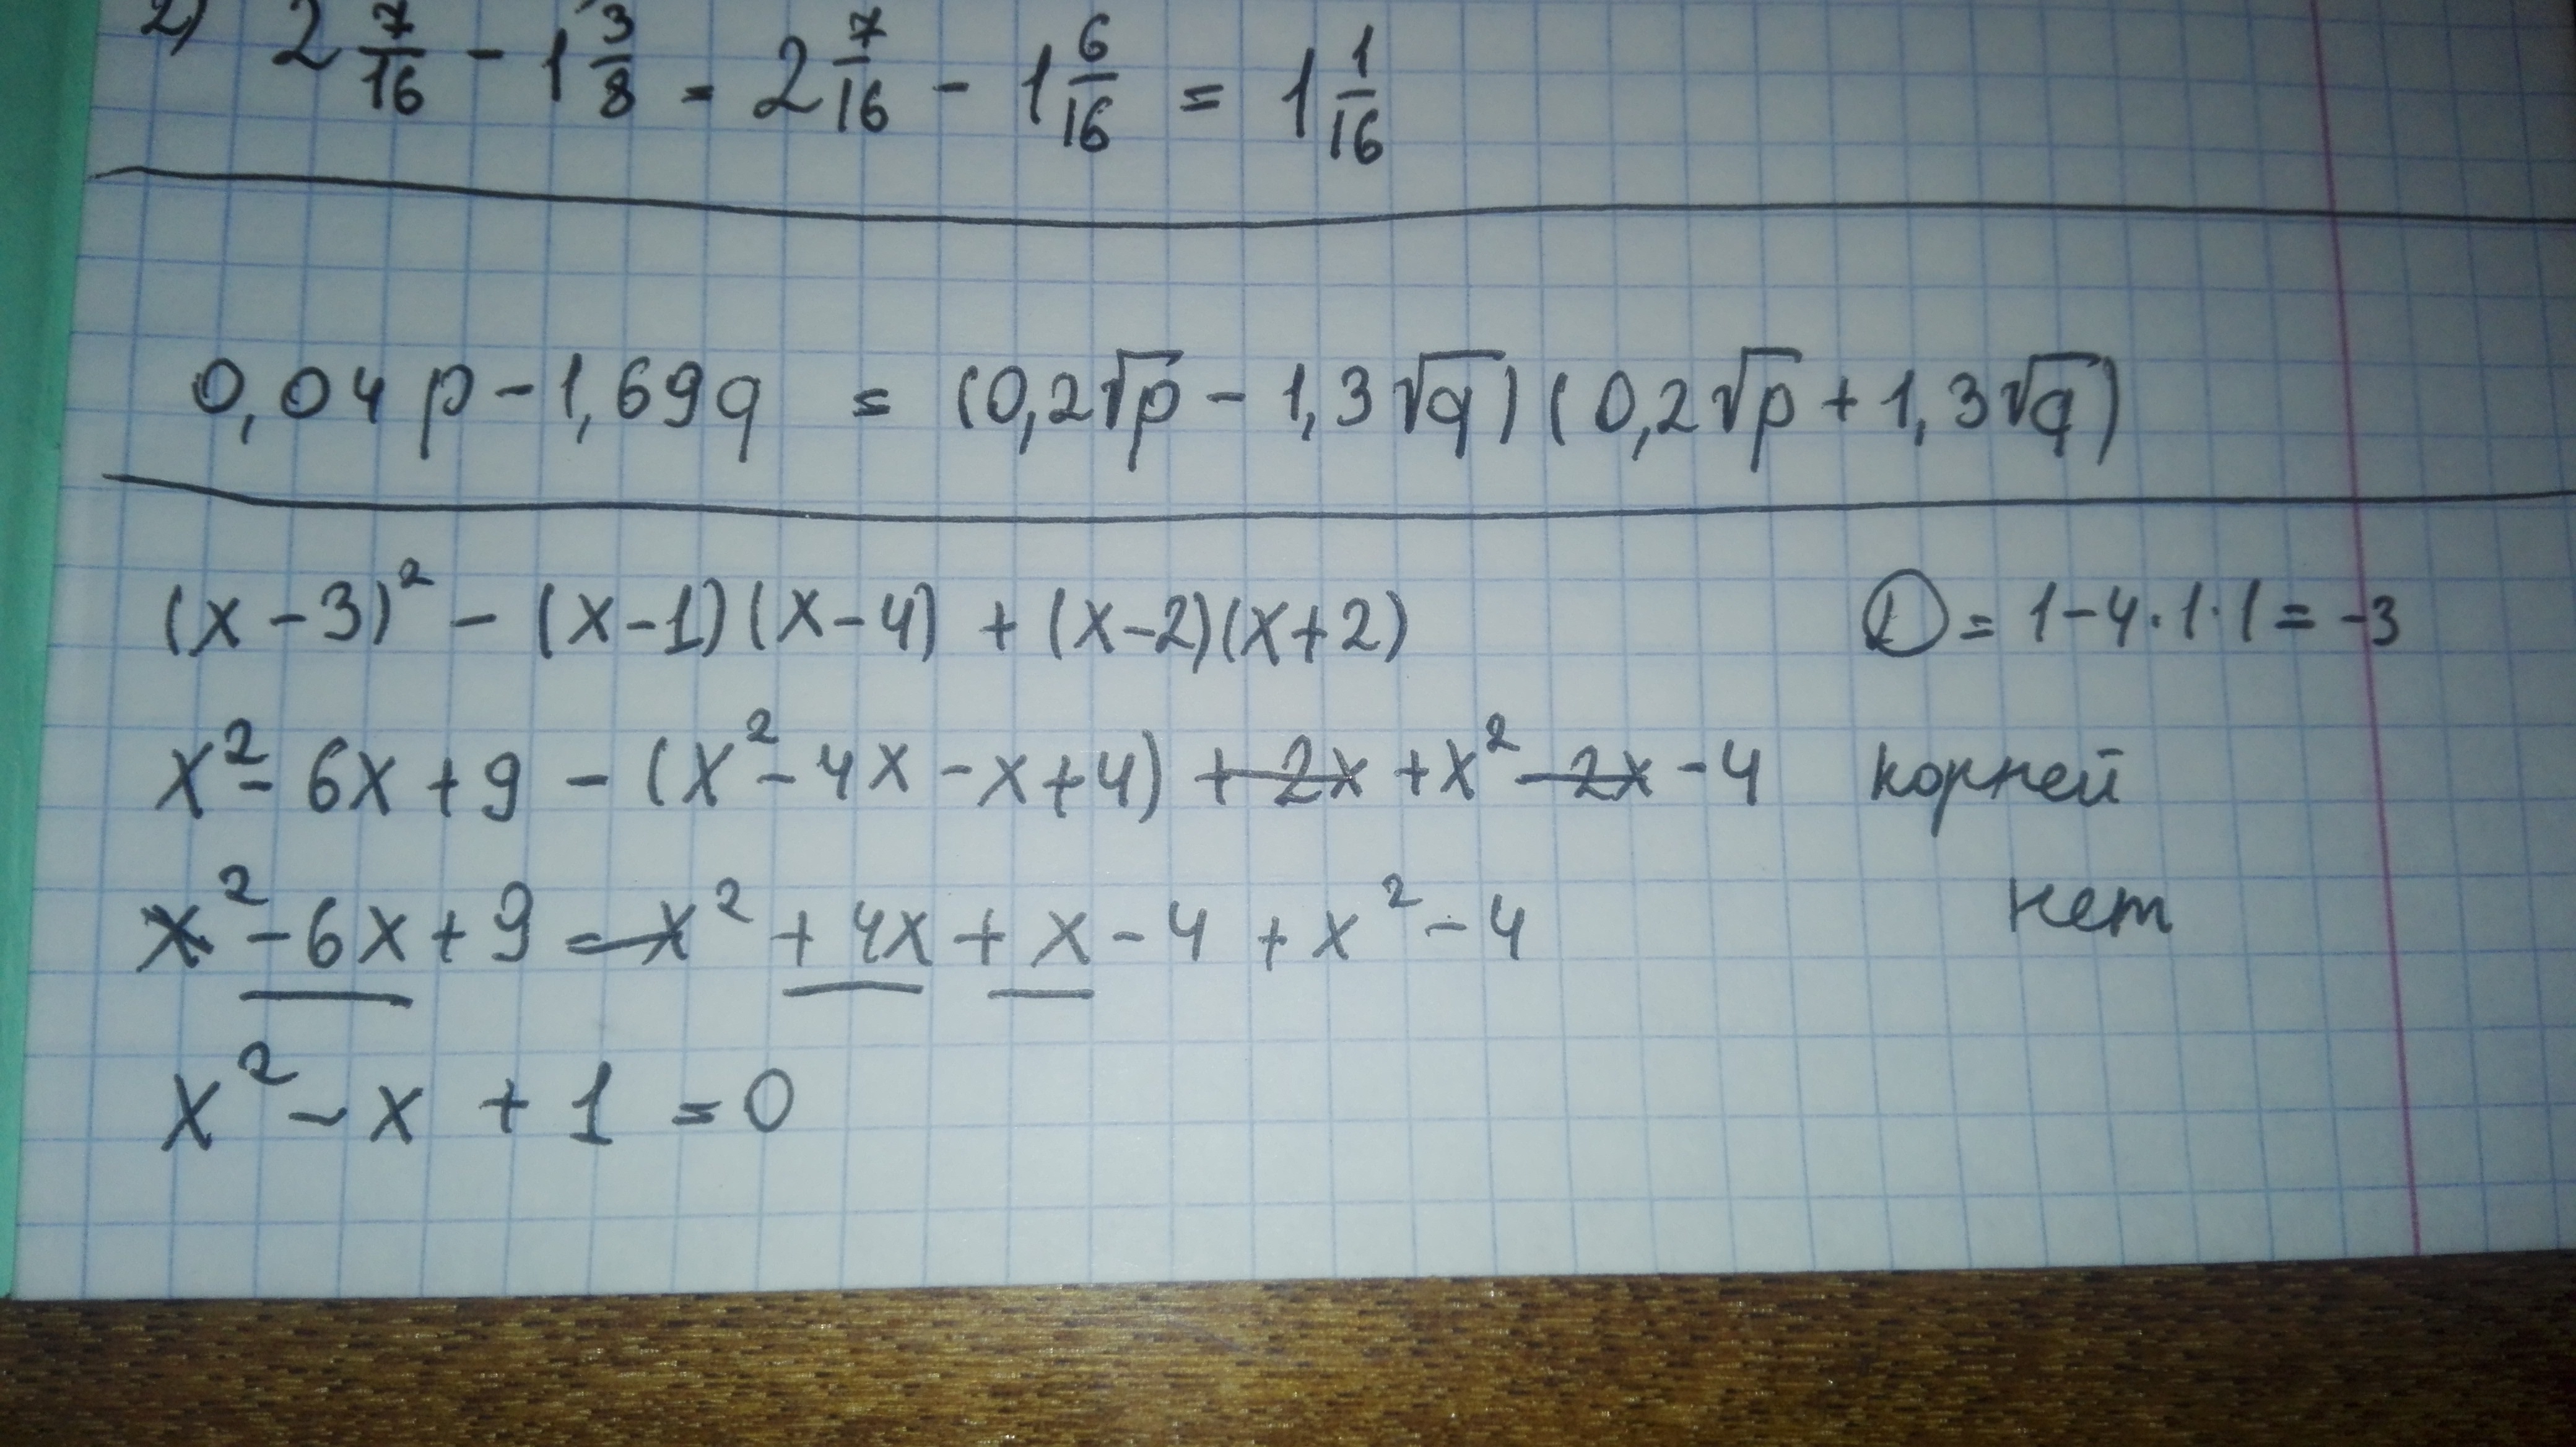 2) 2 7/16 - 1 3/8 = 2 7/16 - 1 6/16 = 1 1/16
0,04p - 1,69q = (0,2√p - 1,3√q)(0,2√p + 1,3√q)
(x-3)² - (x-1)(x-4) + (x-2)(x+2) D = 1-4·1·1 = -3
x² - 6x + 9 - (x² - 4x - x + 4) + 2x + x² - 2x - 4 корней
x² - 6x + 9 - x² + 4x + x - 4 + x² - 4 нет
x² - x + 1 = 0